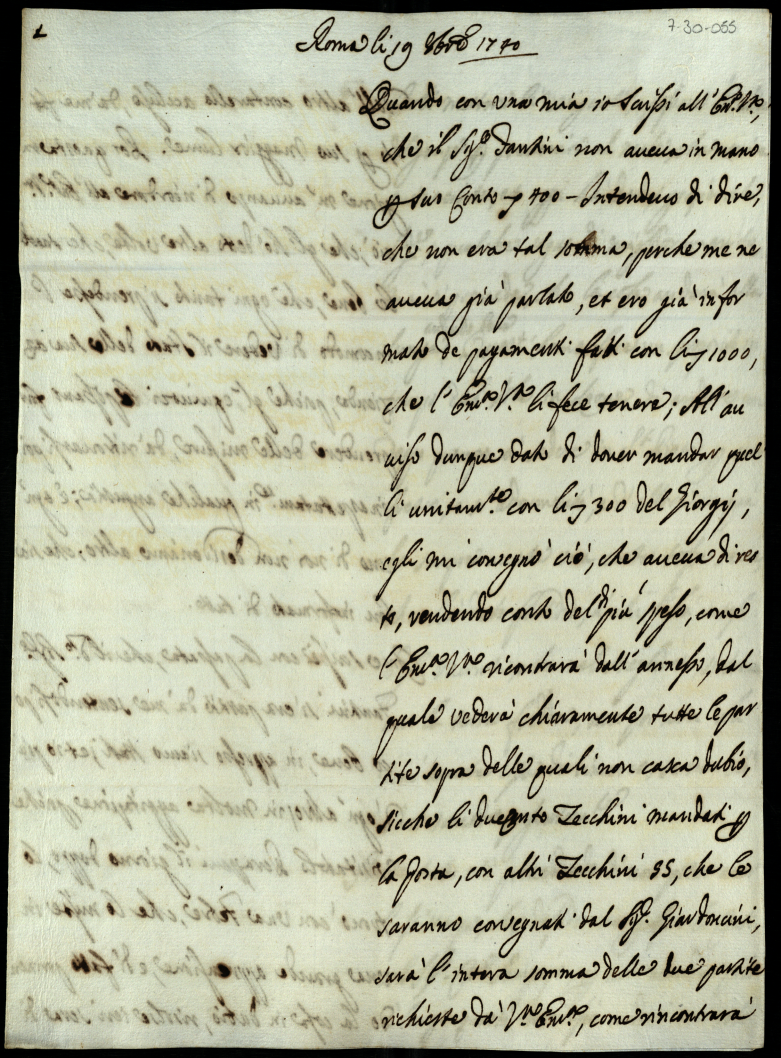 1
7-30-055
Roma li 19 8bre 1740
Quando con una mia io scrissi all' Em.a V.ra,
che il Sig.r Santini non aveva in mano
p suo Conto 400 - Intendevo di dire,
che non era tal somma, perche me ne
aveva già parlato, et ero già infor
mato de pagamenti fatti con li 1000,
che l' Em.a V.ra li fece tenere; All' au
uiso dunque dato di dover mandar quel
li unitam.te con li 300 del Giorgij,
egli mi consegnò ciò, che aveva di res
to, rendendo conto del di già speso, come
l' Em.a V.ra ricontrarà dall' annesso, dal
quale vederà chiaramente tutte le par
tite sopra delle quali non casca dubio,
sicche li ducento Zecchini mandati p
la Posta, con altri Zecchini 35, che le
saranno consegnati dal Sig.r Giardoncini,
sarà l' intera somma delle due partite
richieste da V.ra Em.a, come rincontrarà